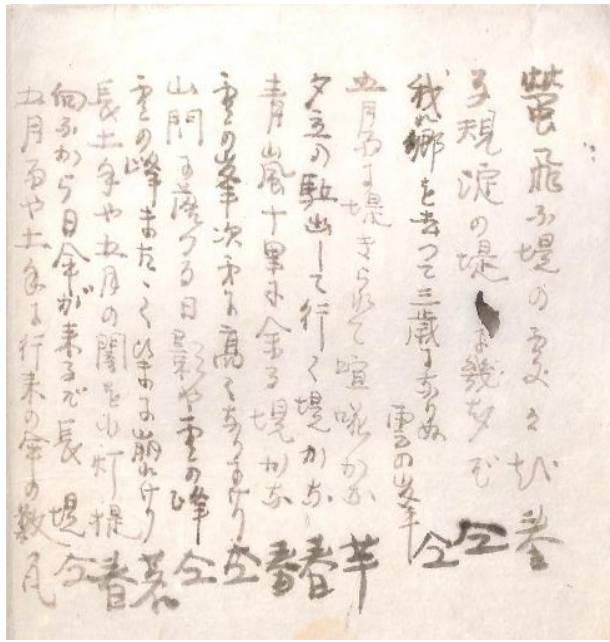 螢飛ふ堤の
子規淀の堤 幾夕ぞ 仝
我れ郷を去つて三歳になりぬ 雲の峯 仝
五月雨に堤きられて喧嘩かな 芋
夕立の駈出して行く堤かな 春
青嵐十里に余る堤かな 春
雲の峯次第に高くなりにけり 仝
山門に落つる日影や雲の峰 仝
雲の峰またゝくひまに崩れけり
長土手や五月の闇を小灯提 春
向ふから日傘が来るぞ長堤 仝
五月雨や土手に行来の傘の数 凡